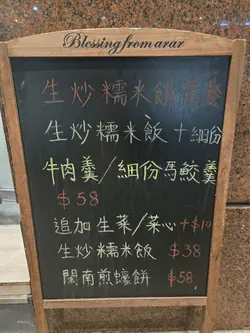 Blessing from arar
生炒糯米飯套餐
生炒糯米飯 + 細份
牛肉羹/細份馬鮫羹
$58
追加生菜/菜心 + $10
生炒糯米飯 $38
閩南煎蠔餅 $58